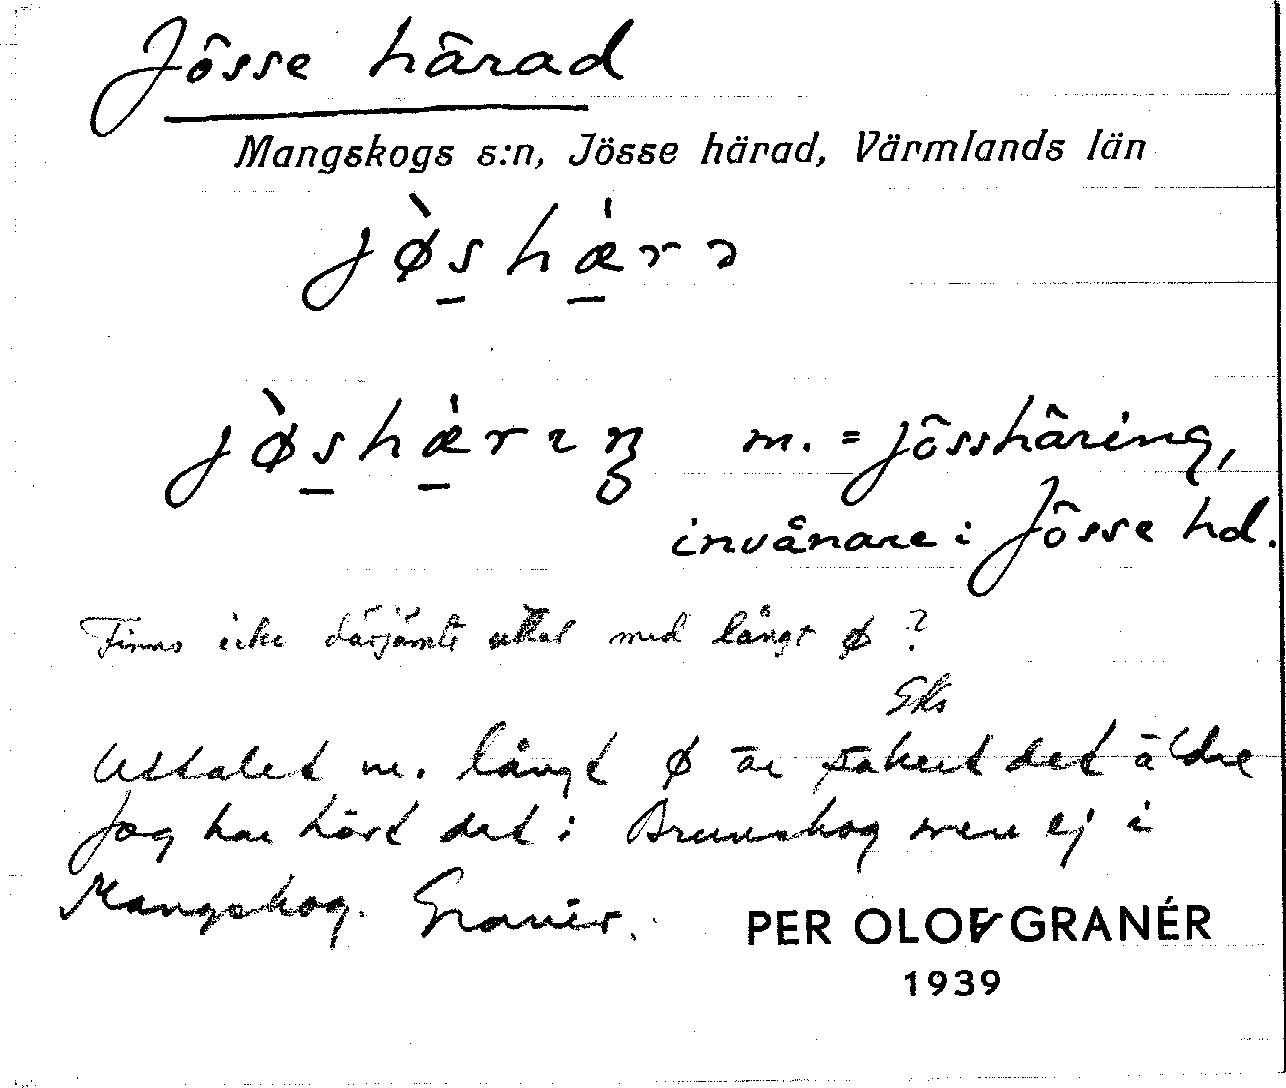 Jösse härad
Mangskogs s:n, Jösse härad, Värmlands län
jø̀s̲hæ̲̇rə
jø̀s̲hæ̲̇rıŋ m. = jösshäring,
invånare i Jösse hd.
Finns icke därjämte uttal med långt ø?
Eks
Uttalet m. långt ø är säkert det äldre
Jag har hört det i Brunskog men ej i
Mangskog. Granér.
PER OLOF GRANÉR
1939